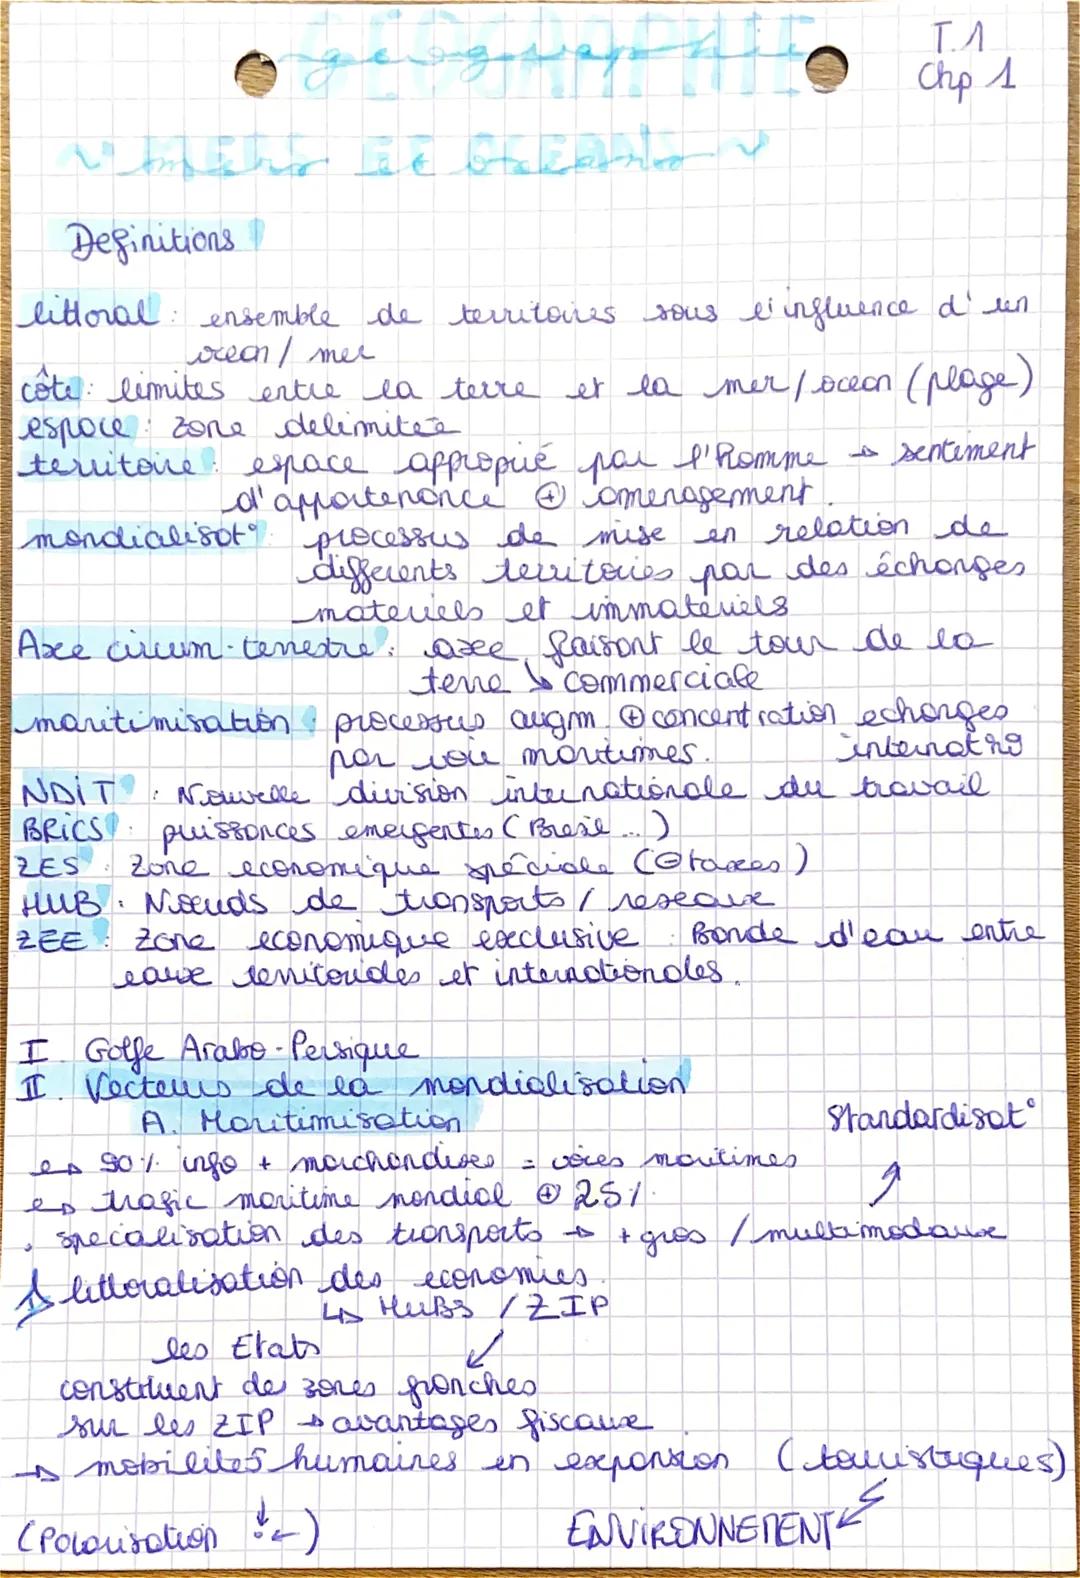 GEOGRAPHIE
geographie
T.1
Chp 1
~ MERS ET OCEANS ~
Definitions
littoral : ensemble de territoires sous l'influence d'un
ocean / mer
côte : limites entre la terre et la mer/ocean (plage)
espace : zone delimitée
territoire : espace approprié par l'Homme → sentiment
d'appartenance ⊕ amenagement.
mondialisat° : processus de mise en relation de
differents territoires par des échanges
materiels et immateriels
Axe circum-terrestre : axe faisant le tour de la
terre ↳ commerciale
maritimisation : processus augm. ⊕ concentration echanges
par voie maritimes. internat
NDIT : Nouvelle division internationale du travail
BRICS : puissances emergentes (Bresil ...)
ZES : Zone economique spéciale (⊖ taxes)
HUB : Nœuds de transports / reseaux
ZEE : Zone economique exclusive : Bande d'eau entre
eaux territoriales et internationales.
I. Golfe Arabo-Persique
II. Vecteurs de la mondialisation
A. Maritimisation
Standardisat°
↳ 90% info + marchandises = voies maritimes
↳ trafic maritime mondial ⊕ 25%
, specialisation des transports → + gros / multimodaux
↳ littoralisation des economies.
↳ HUBs / ZIP
les Etats
constituent des zones franches
sur les ZIP → avantages fiscaux
→ mobilités humaines en expansion (touristiques)
(Polarisation ↓ ←)
ENVIRONNEMENT